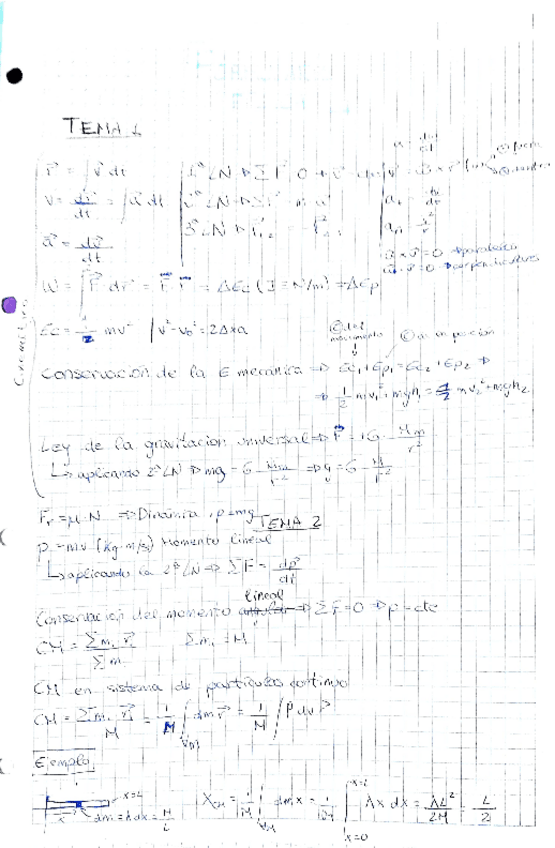 TEMA 1
r⃗ = ∫ v⃗ dt
v = dr⃗/dt = ∫ a⃗ dt
a⃗ = dv⃗/dt
1ª LN ⇒ ΣF = 0
2ª LN ⇒ ΣF = m a
3ª LN ⇒ F⃗₁,₂ = -F⃗₂,₁
W = ∫ F⃗ · dr⃗ = F⃗ · r⃗ = ΔEc (J = N/m) = ΔEp
Ec = 1/2 mv² | v² - v₀² = 2Δxa
movimiento
posición
Conservación de la E mecánica ⇒ Ec₁ + Ep₁ = Ec₂ + Ep₂ ⇒
⇒ 1/2 mv₁² + mgh₁ = 1/2 mv₂² + mgh₂
Ley de la gravitación universal ⇒ F⃗ = G Mm/r²
↳ aplicando 2ª LN ⇒ mg = G Mm/r² ⇒ g = G M/r²
Fr = μ · N ⇒ Dinámica, p = mg
TEMA 2
p = mv (kg·m/s) Momento lineal
↳ aplicando la 2ª LN ⇒ ΣF = dp⃗/dt
lineal
Conservación del momento ⇒ ΣF = 0 ⇒ p = cte
CM = Σmᵢ r⃗ᵢ / Σmᵢ    Σmᵢ = M
CM en sistema de partículas continuo
CM = Σmᵢ r⃗ᵢ / M = 1/M ∫ dm r⃗ = 1/M ∫ ρ dv r⃗
Ejemplo
x=L
dm = λdx = M/L
X_CM = 1/M ∫ dm x = 1/M ∫ λx dx = λL²/2M = L/2
x=L
x=0